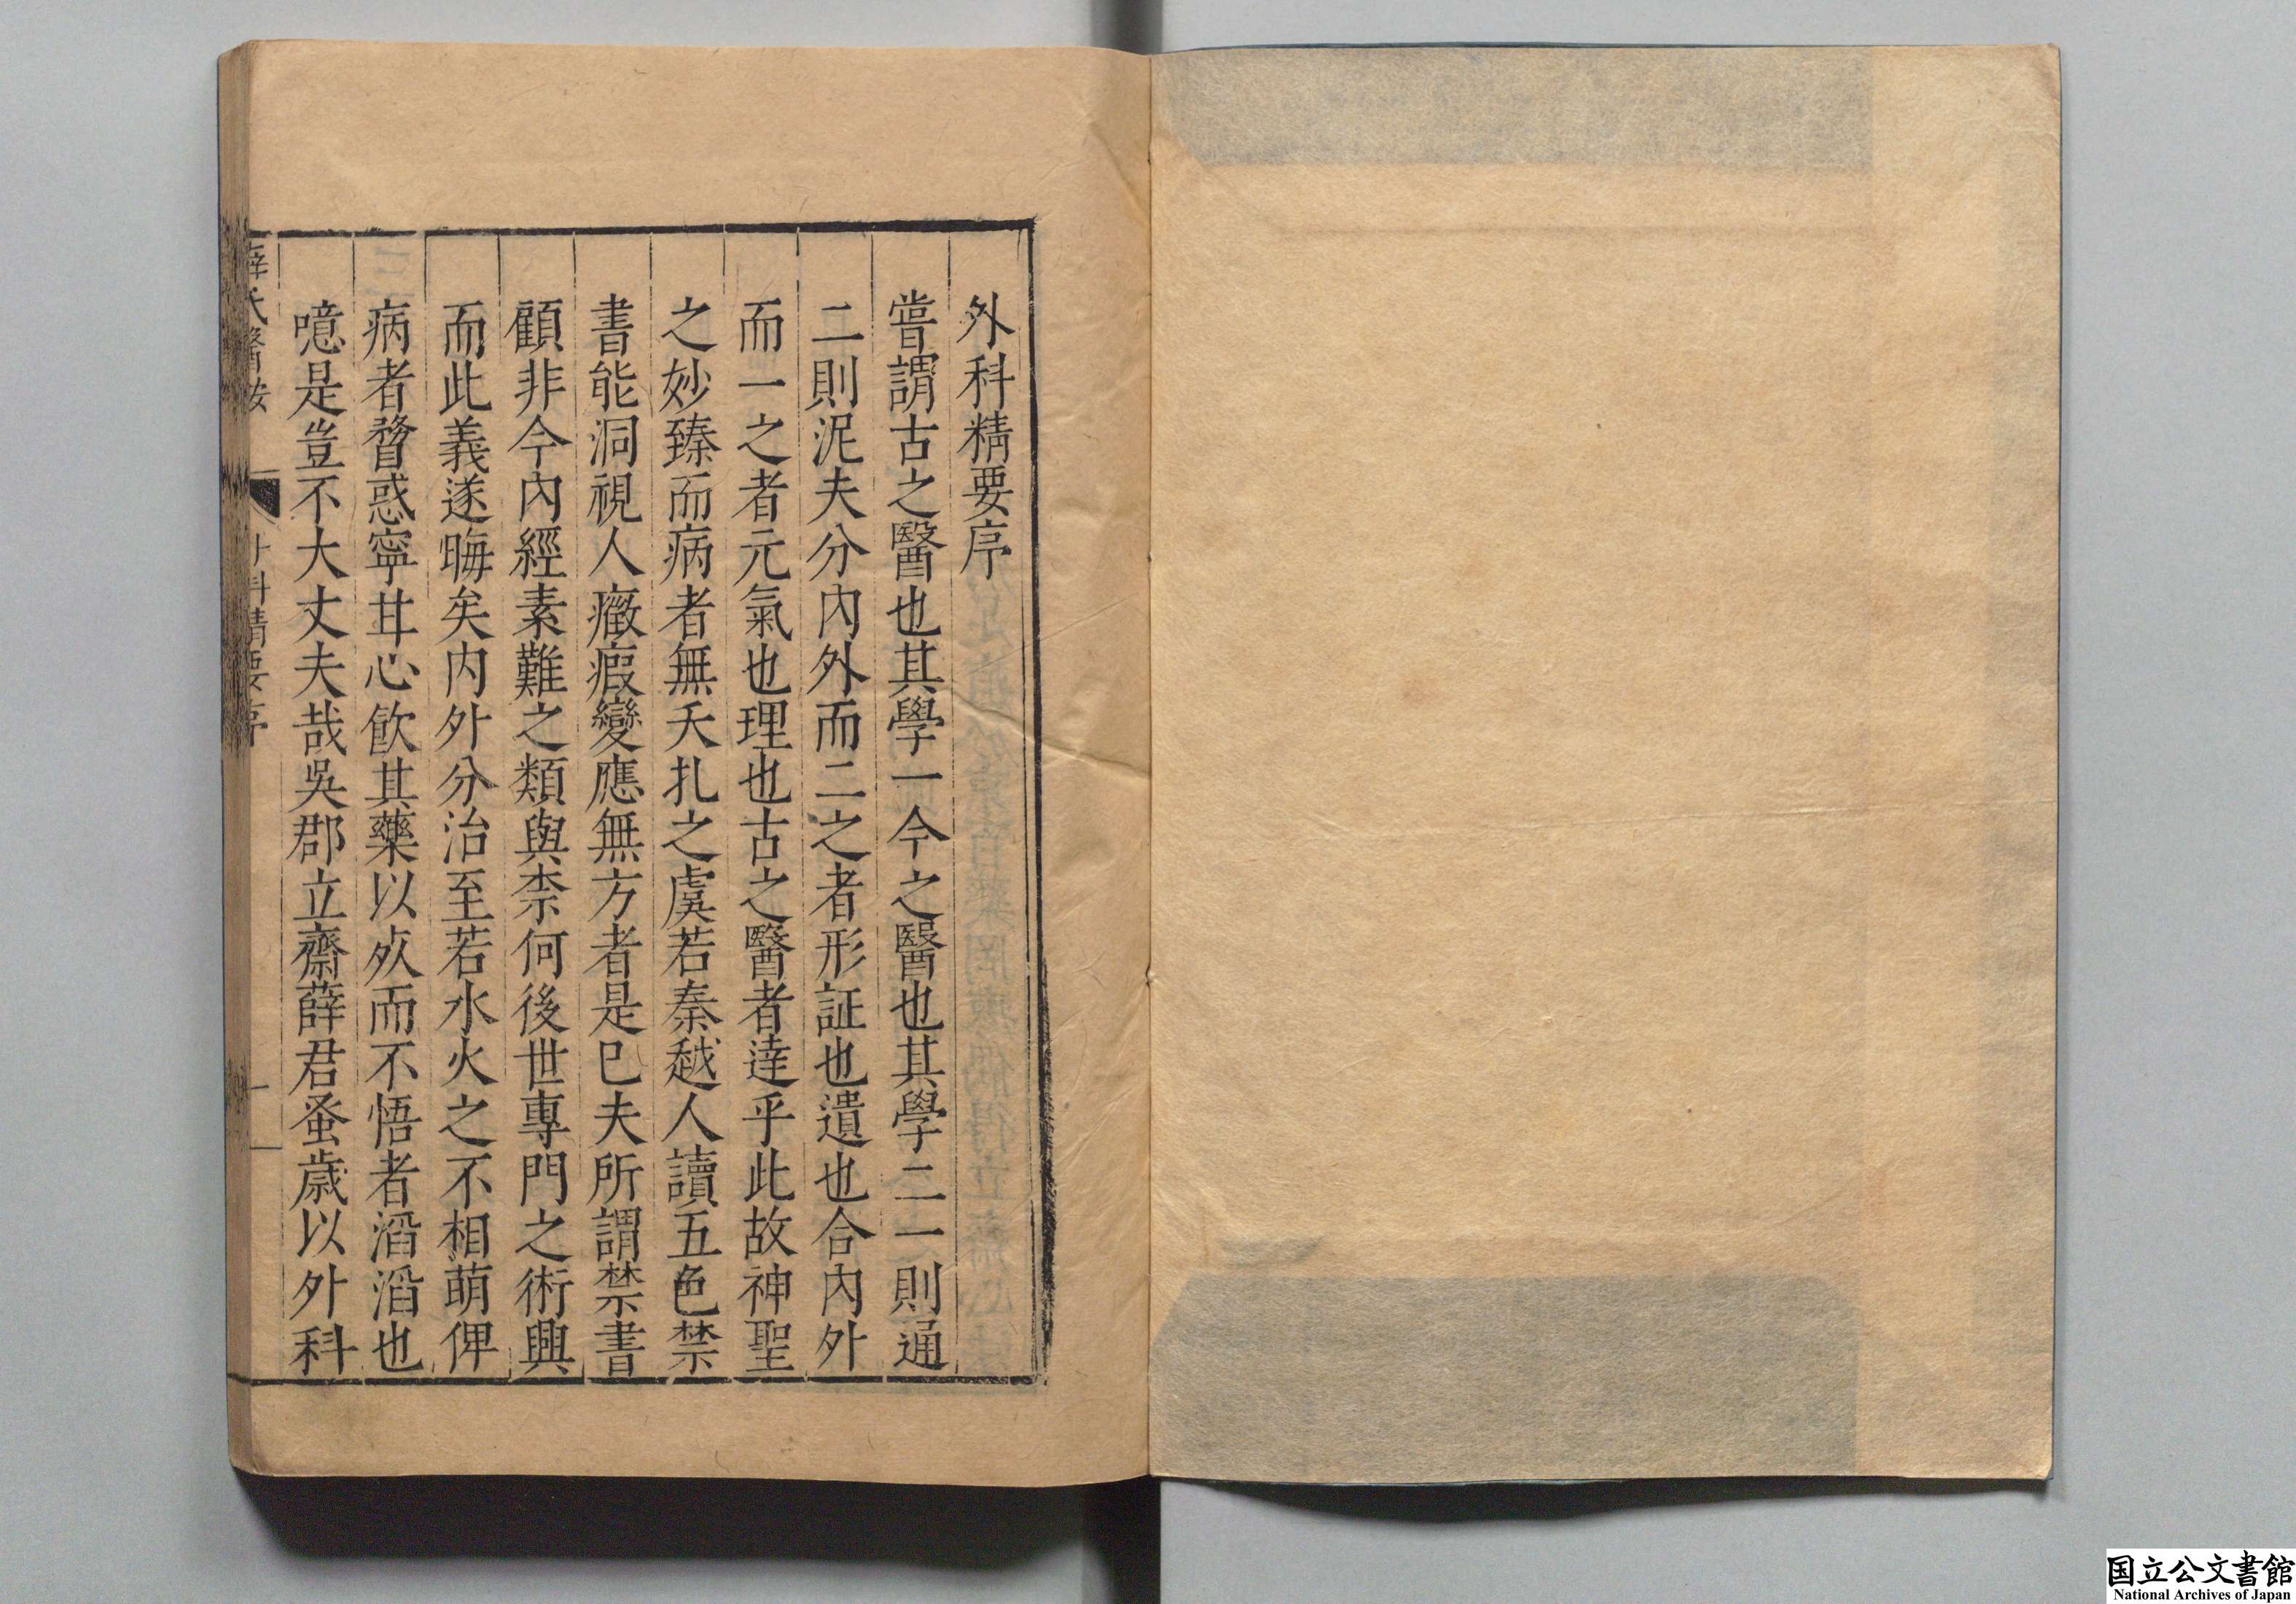 外科精要序
嘗謂古之醫也其學一今之醫也其學二一則通
二則泥夫分內外而二之者形証也遺也合內外
而一之者元氣也理也古之醫者達乎此故神聖
之妙臻而病者無夭扎之虞若秦越人讀五色禁
書能洞視人癥瘕變應無方者是巳夫所謂禁書
顧非今內經素難之類與柰何後世專門之術興
而此義遂晦矣内外分治至若水火之不相萌俾
病者瞀惑寧甘心飮其藥以死而不悟者滔滔也
噫是豈不大丈夫哉吳郡立齋薛君蚤歲以外科
薛氏醫按 外科精要序 一
国立公文書館
National Archives of Japan